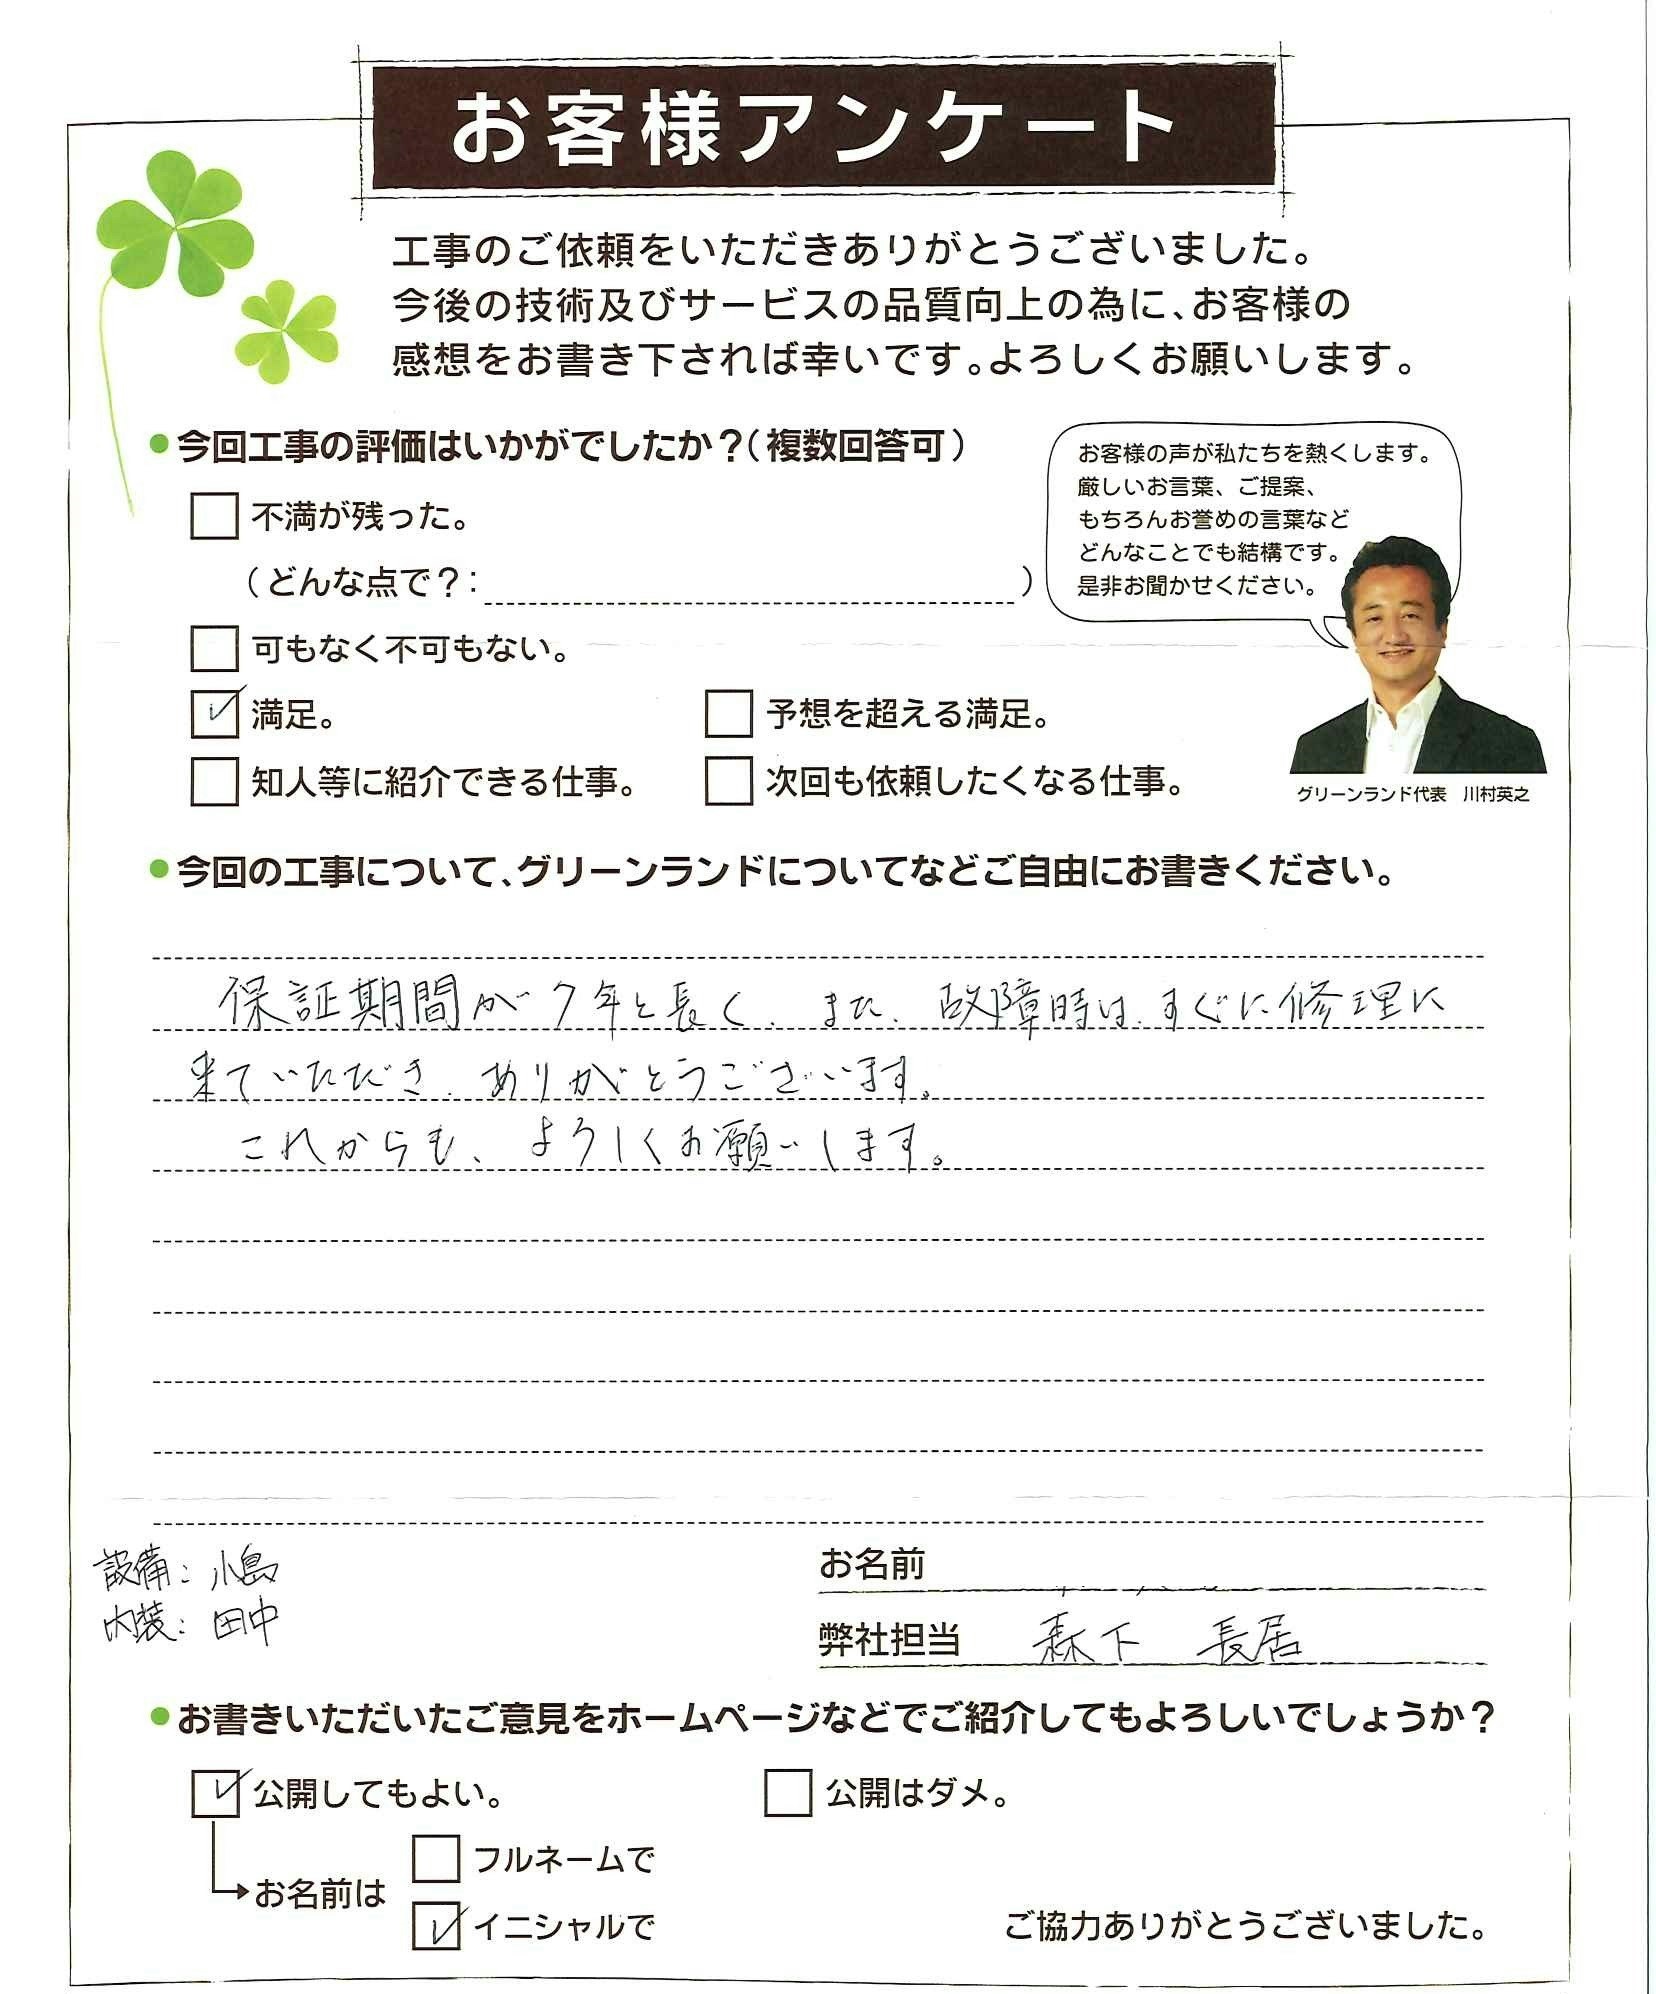 お客様アンケート
工事のご依頼をいただきありがとうございました。
今後の技術及びサービスの品質向上の為に、お客様の
感想をお書き下されば幸いです。よろしくお願いします。
●今回工事の評価はいかがでしたか?(複数回答可)
お客様の声が私たちを熱くします。
厳しいお言葉、ご提案、
もちろんお誉めの言葉など
どんなことでも結構です。
是非お聞かせください。
不満が残った。
(どんな点で?: )
可もなく不可もない。
満足。 予想を超える満足。
知人等に紹介できる仕事。 次回も依頼したくなる仕事。
グリーンランド代表 川村英之
●今回の工事について、グリーンランドについてなどご自由にお書きください。
保証期間が7年と長く、また、故障時は、すぐに修理に
来ていただき、ありがとうございます。
これからも、よろしくお願いします。
設備:小島
内装:田中
お名前
弊社担当 森下 長居
●お書きいただいたご意見をホームページなどでご紹介してもよろしいでしょうか?
公開してもよい。 公開はダメ。
お名前は
フルネームで
イニシャルで
ご協力ありがとうございました。